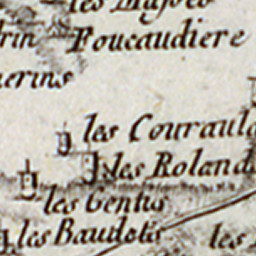 les
rin Foucaudiere
erins
les Couraul
les Roland
les Gentis
les Baudetis
les